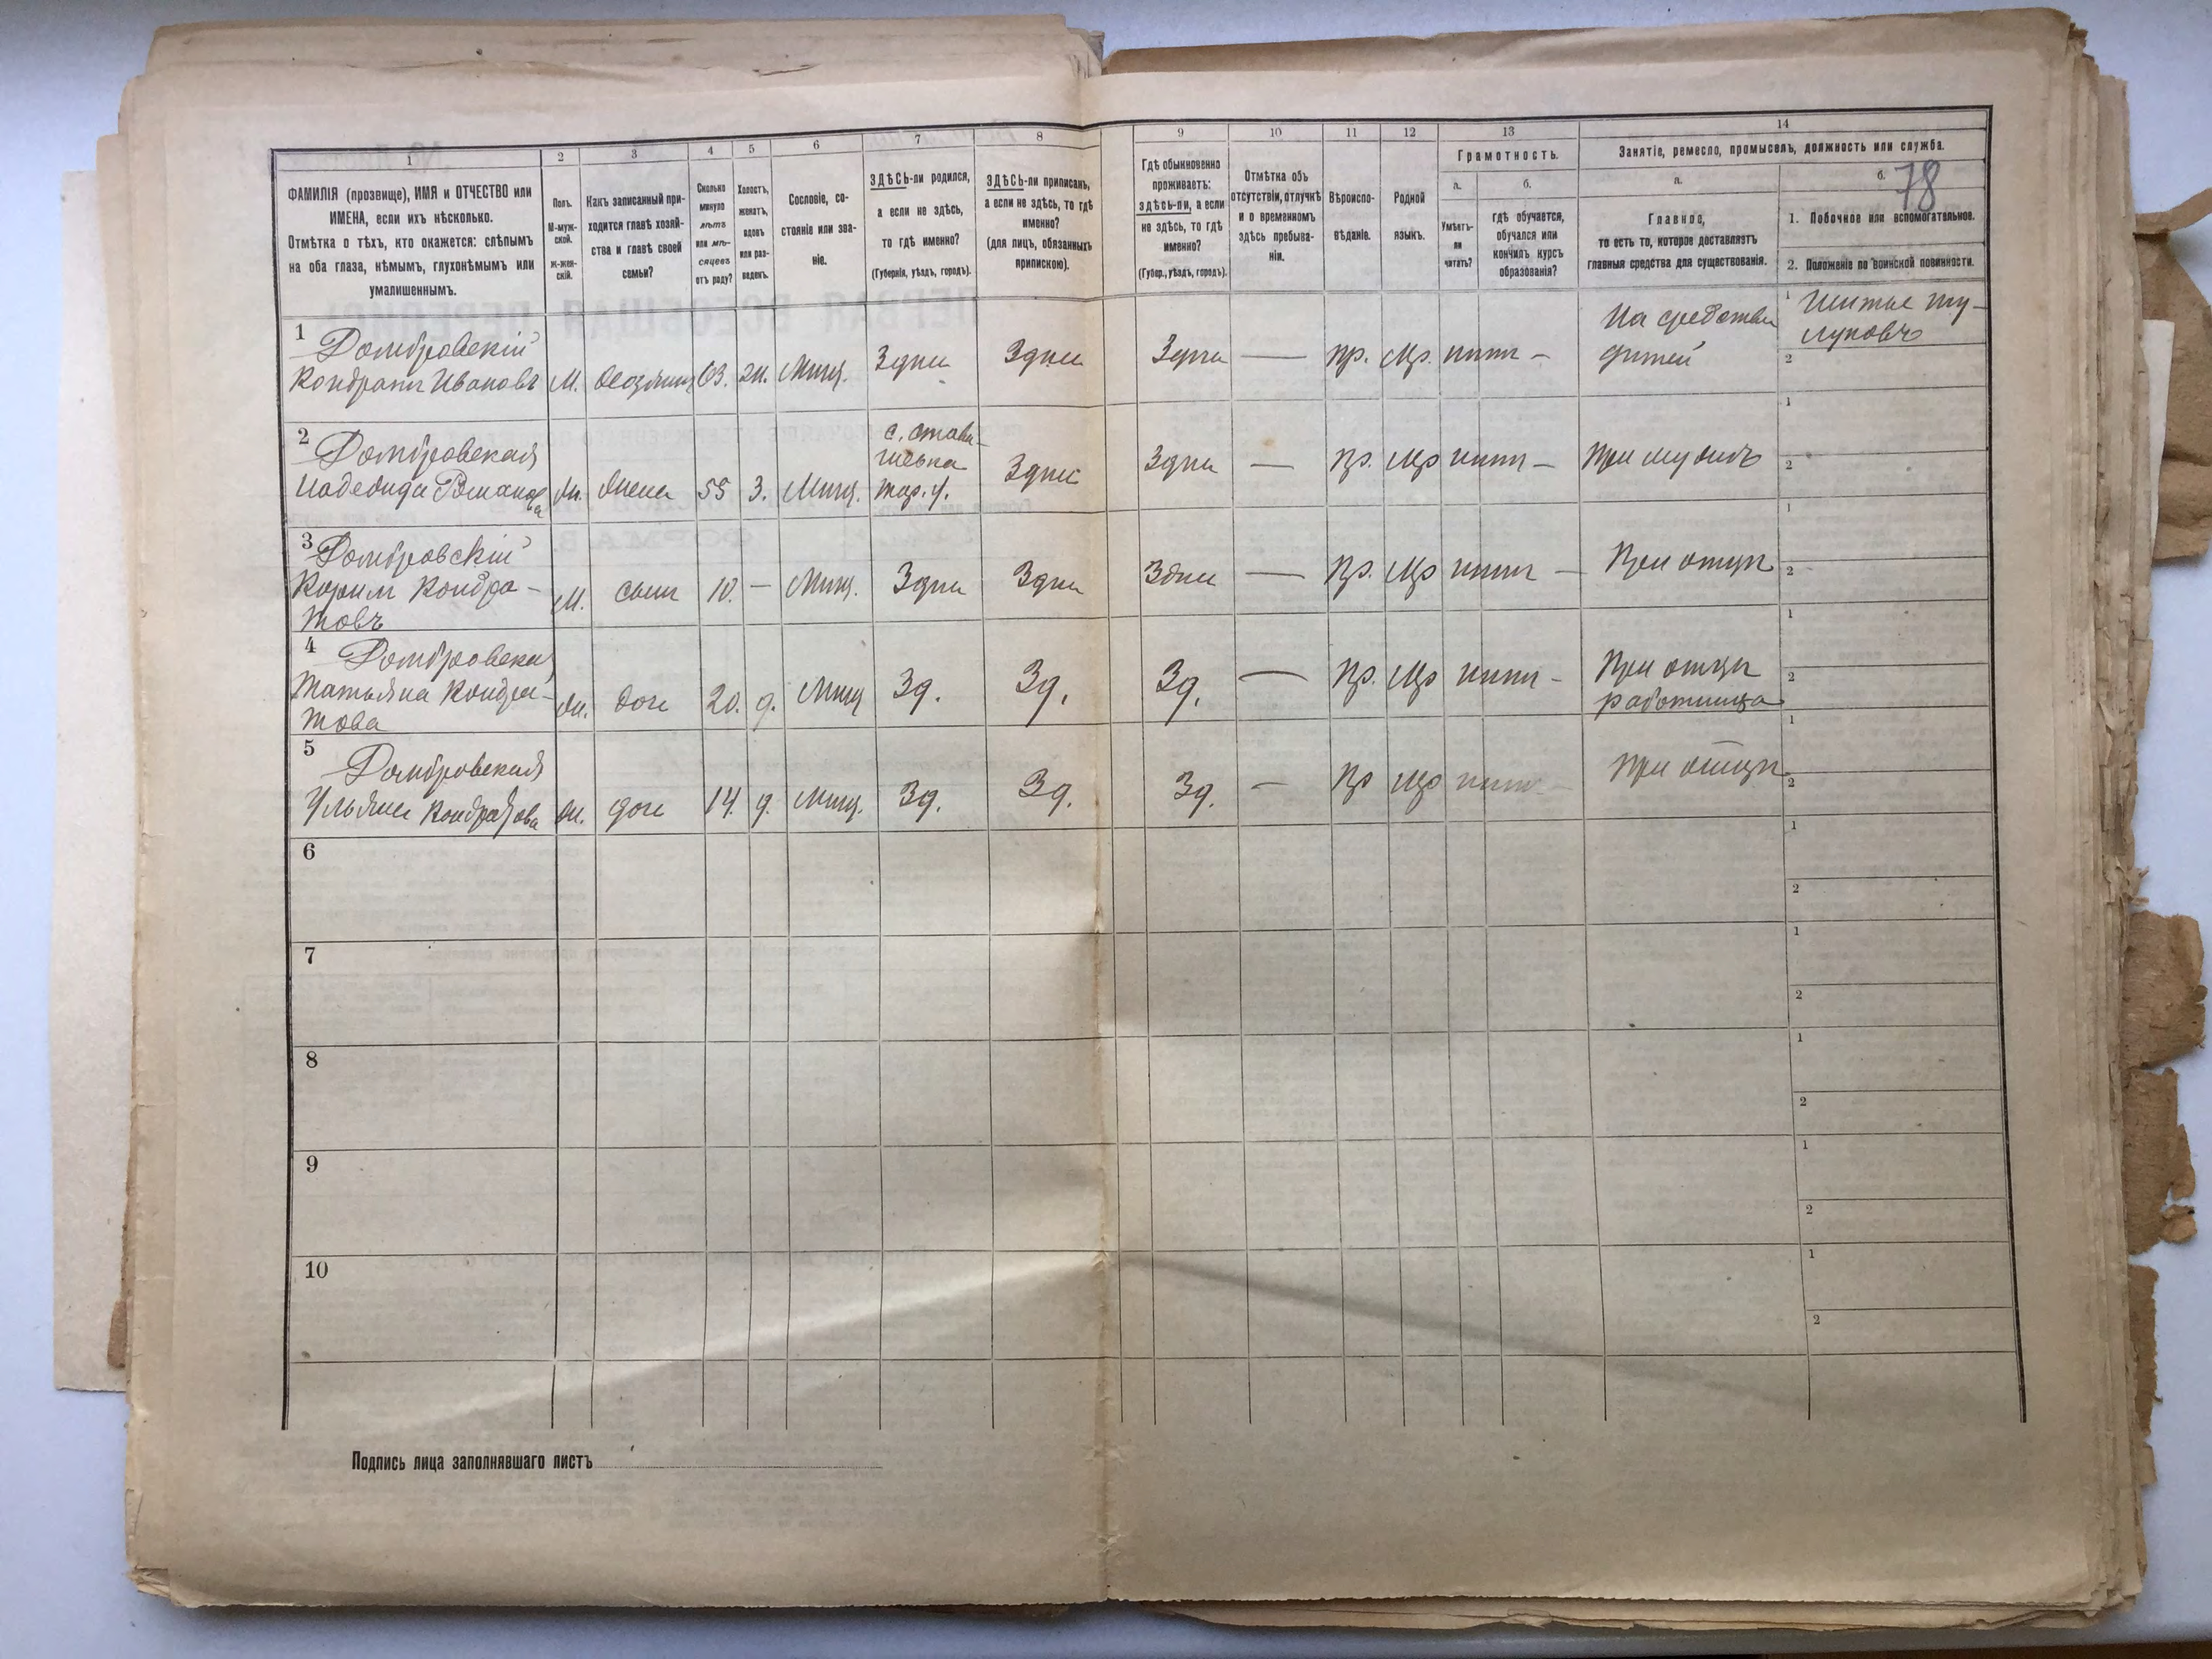 1
2
3
4
5
6
7
8
9
10
11
12
13
14
ФАМИЛІЯ (прозвище), ИМЯ и ОТЧЕСТВО или
ИМЕНА, если ихъ нѣсколько.
Отмѣтка о тѣхъ, кто окажется: слѣпымъ
на оба глаза, нѣмымъ, глухонѣмымъ или
умалишеннымъ.
Полъ.
М-муж-
ской.
ж-жен-
скій.
Какъ записанный при-
ходится главѣ хозяй-
ства и главѣ своей
семьи?
Сколько
минуло
лѣтъ
или мѣ-
сяцевъ
отъ роду?
Холостъ,
женатъ,
вдовъ
или раз-
веденъ.
Сословіе, со-
стояніе или зва-
ніе.
ЗДѢСЬ-ли родился,
а если не здѣсь,
то гдѣ именно?
(Губернія, уѣздъ, городъ).
ЗДѢСЬ-ли приписанъ,
а если не здѣсь, то гдѣ
именно?
(для лицъ, обязанныхъ
припискою).
Гдѣ обыкновенно
проживаетъ:
здѣсь-ли, а если
не здѣсь, то гдѣ
именно?
(Губер., уѣздъ, городъ).
Отмѣтка объ
отсутствіи, отлучкѣ
и о временномъ
здѣсь пребыва-
ніи.
Вѣроиспо-
вѣданіе.
Родной
языкъ.
Грамотность.
а.
Умѣетъ-
ли
читать?
б.
гдѣ обучается,
обучался или
кончилъ курсъ
образованія?
Занятіе, ремесло, промыселъ, должность или служба.
а.
Главное,
то есть то, которое доставляетъ
главныя средства для существованія.
б.
78
1. Побочное или вспомогательное.
2. Положеніе по воинской повинности.
1
Домбровскій
Кондратъ Ивановъ
М.
хозяинъ
63.
Мѣщ.
Здѣсь
Здѣсь
Здѣсь
—
пр.
мр.
нѣтъ
—
На средства
дѣтей
1
Шитье ту-
луповъ
2
2
Домбровская
Надежда Романова
ж.
жена
55
З.
Мѣщ.
с. Стави-
Тар. у.
Здѣсь
Здѣсь
—
пр.
мр
нѣтъ
—
При мужѣ
1
2
3
Домбровскій
Кондра-
товъ
М.
сынъ
10.
—
Мѣщ.
Здѣсь
Здѣсь
Здѣсь
—
пр.
мр
нѣтъ
—
При отцѣ
1
2
4
Домбровская
Татьяна Кондра-
това
ж.
дочь
20.
д.
Мѣщ
Зд.
Зд.
Зд.
—
пр.
мр
нѣтъ
—
При отцѣ
работница
1
2
5
Домбровская
Ульяна Кондратова
ж.
дочь
14.
д.
Мѣщ.
Зд.
Зд.
Зд.
—
пр
мр
нѣтъ
—
При отцѣ
1
2
6
1
2
7
1
2
8
1
2
9
1
2
10
1
2
Подпись лица заполнявшаго листъ